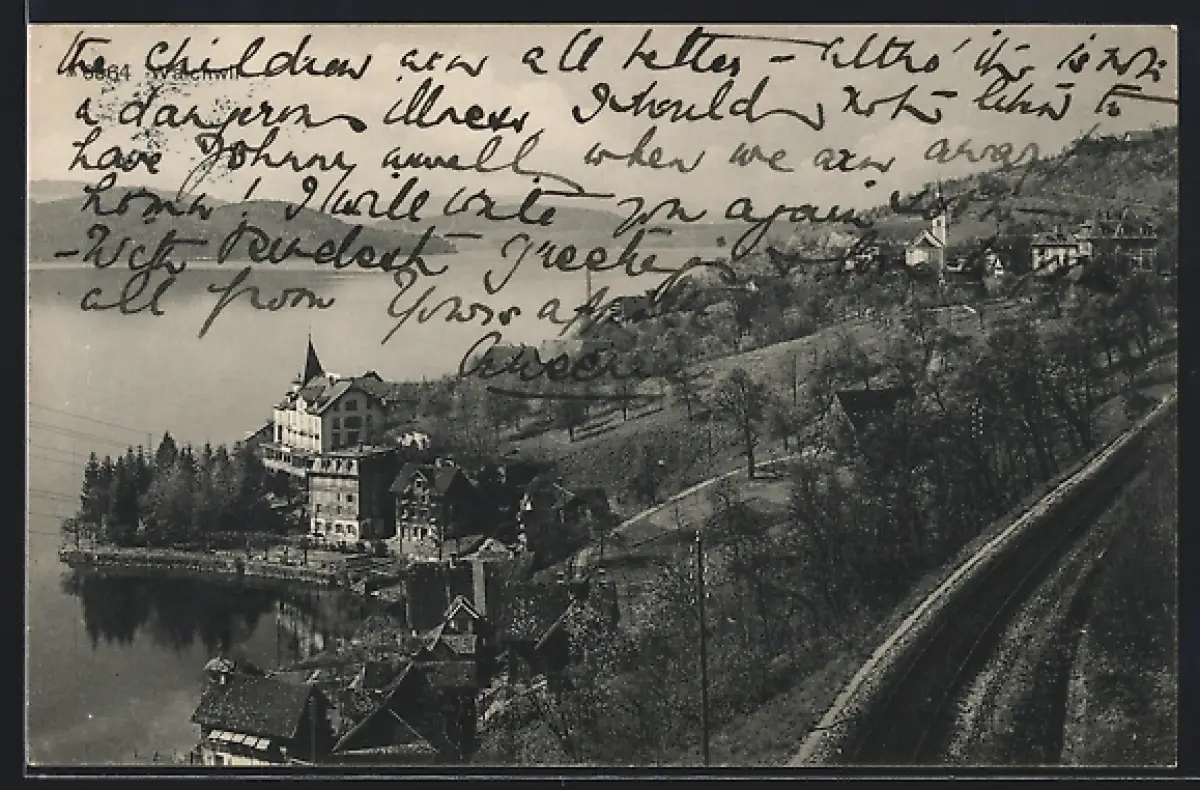 6364 Walchwil
the children are all better - altho' it is not
a dangerous illness I should not like to
have Johnny unwell when we are away from
home! I will write you again soon -
- With kindest greetings & love to
all from Yours affectly